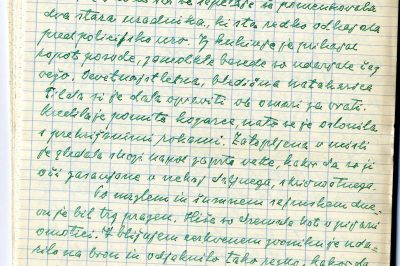 dva stara uradnika, ki sta redko odhajala
pred policijsko uro. Iz kuhinje je prihajal
ropot posode, zamolkle besede so udarjale čez
vejo. Devetnajstletna, bledična natakarica
Tilda si je dala opraviti ob omari za vrati.
kozarce, nato se je oslonila
s prekrižanimi rokami. Zatopljena v misli
je gledala skozi napol zaprte veke, kakor da so ji
oči zasanjane v nekaj daljnega, skrivnostnega.
Po meglenem in šumnem sejmskem dne-
vu je bil trg prazen. Hiše so dremale kot v pijani
omotici. V bližnjem cerkvenem zvoniku je uda-
rilo na bron in odjeknilo tako resno, kakor da